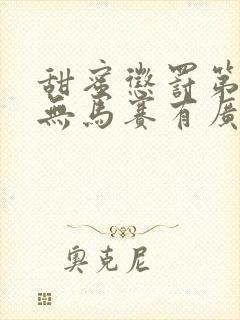 甜蜜懲罰第
無馬賽有廣
奧克尼